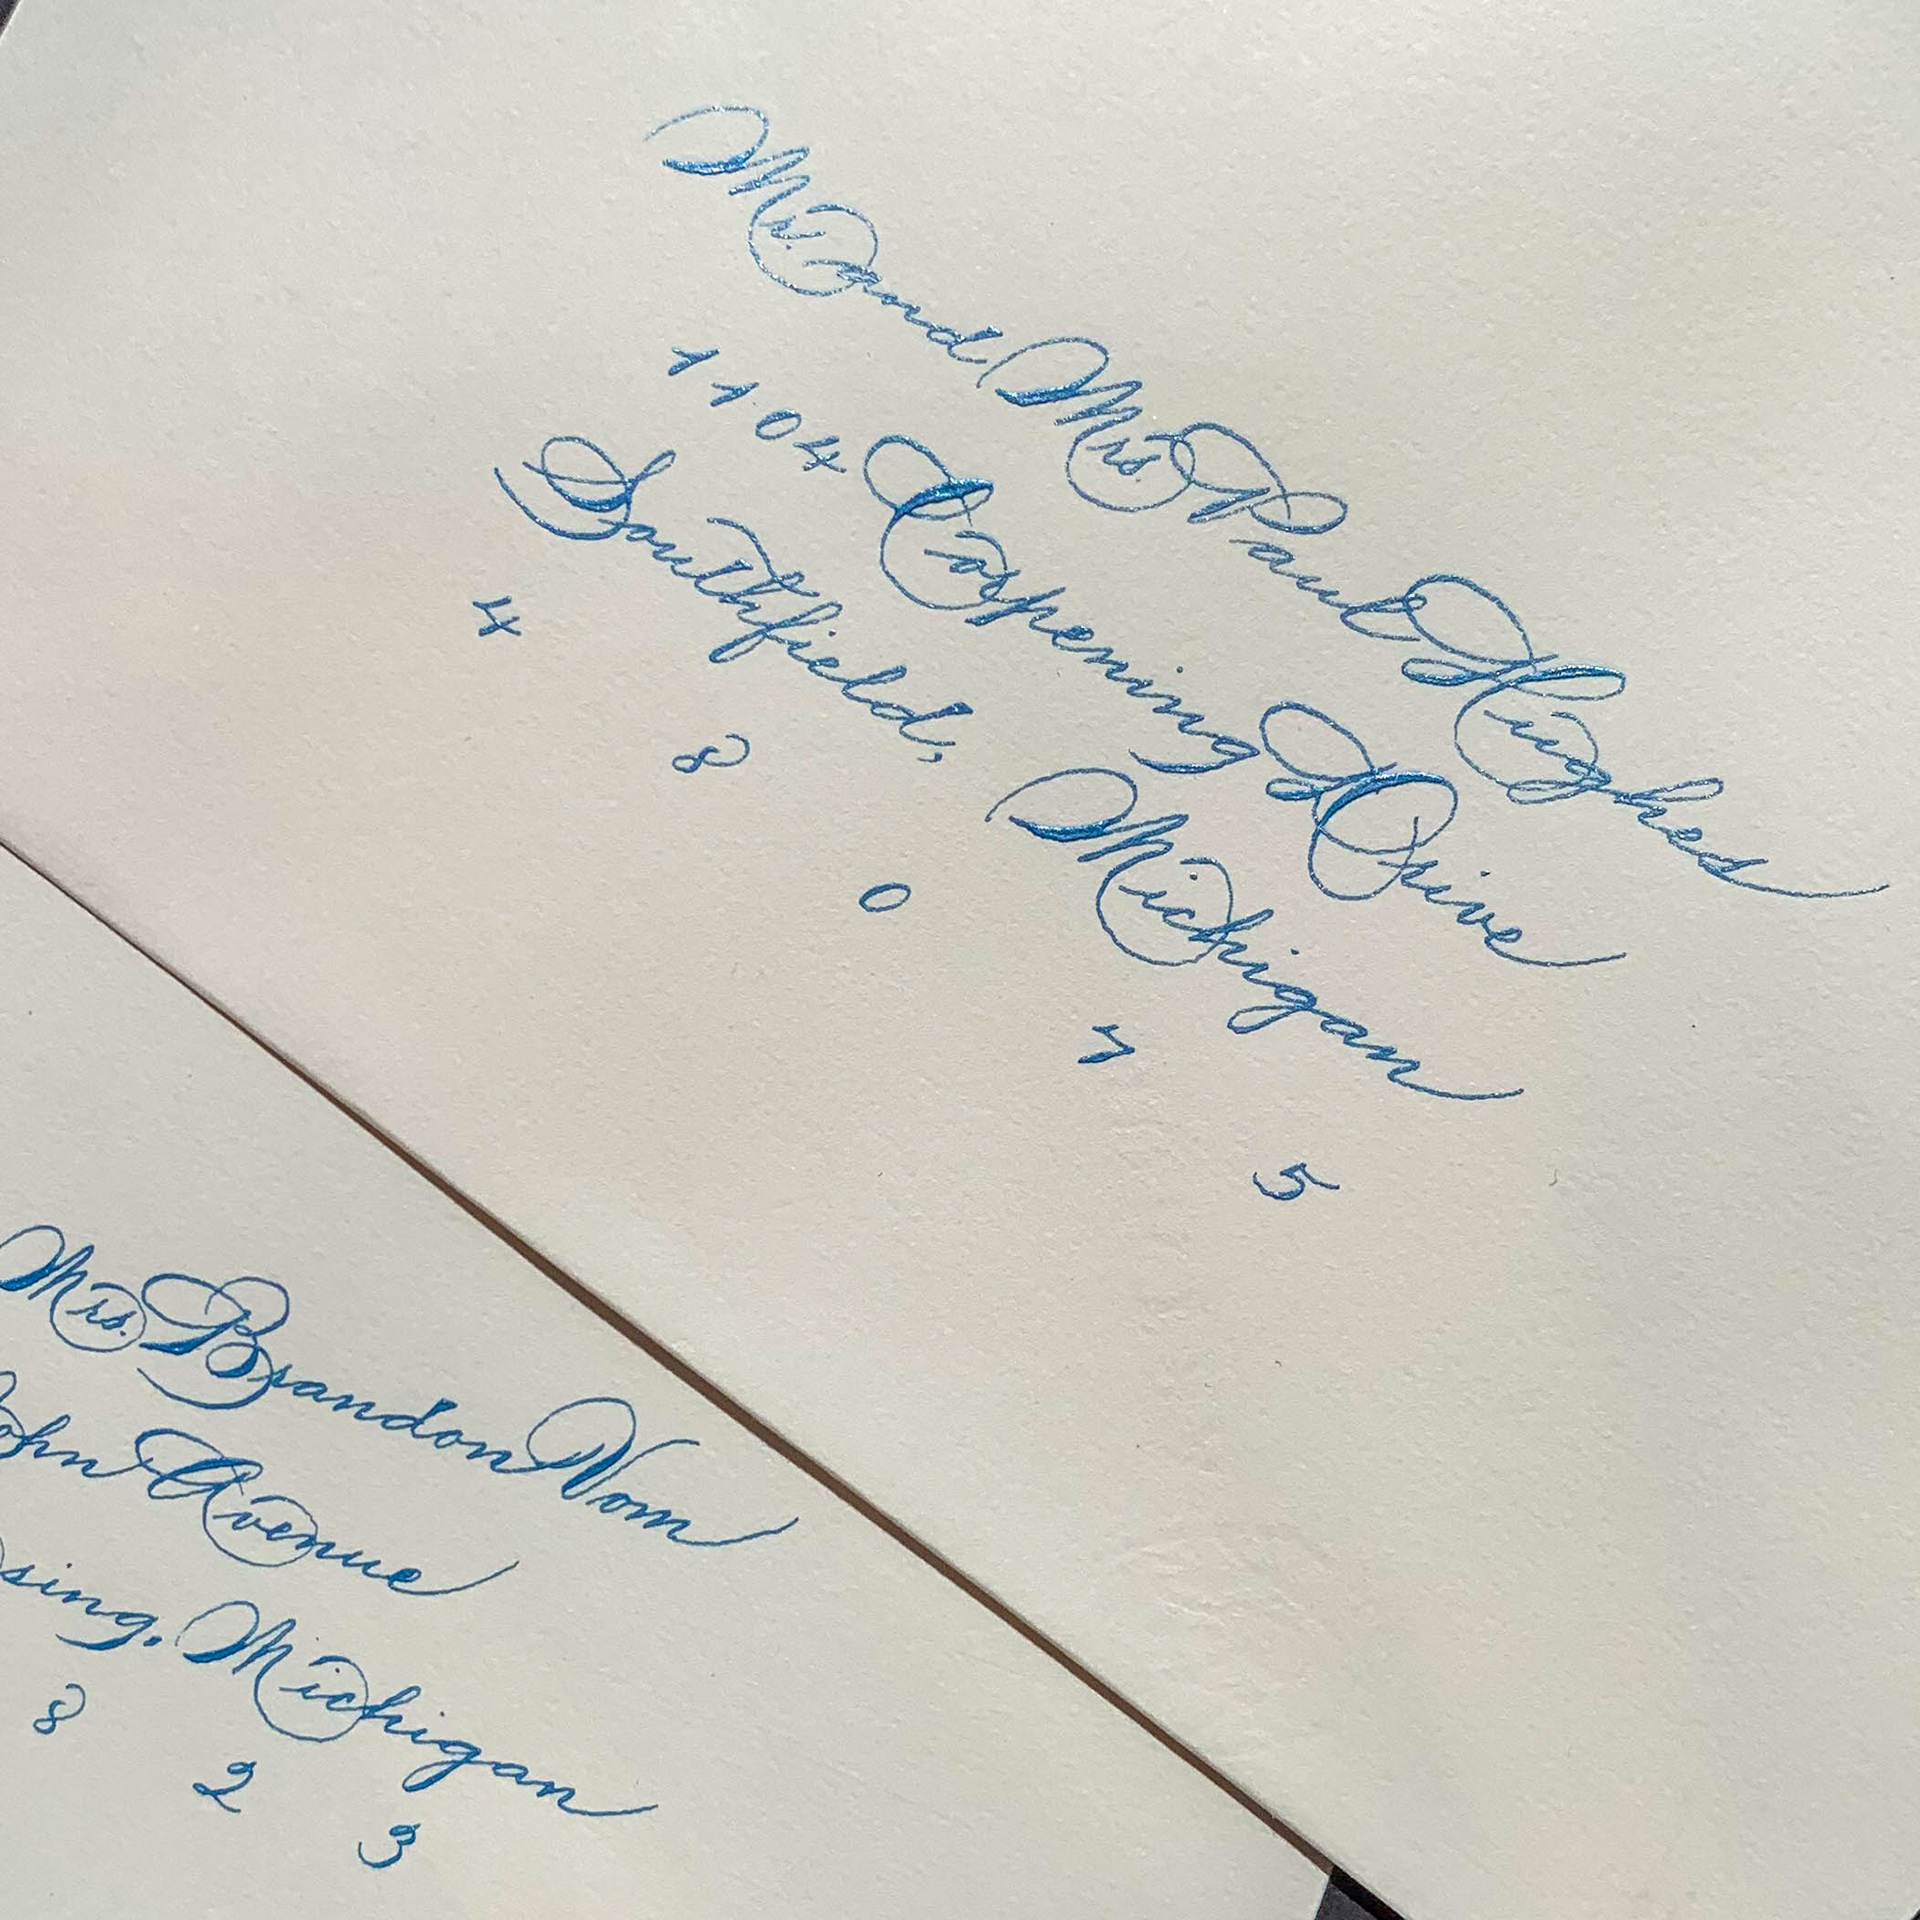 Mr. and Mrs. Paul Hughes
1104 Corpening Drive
Southfield, Michigan
4 8 0 7 5
Mrs. Brandon Nom
John Avenue
sing, Michigan
8 2 3